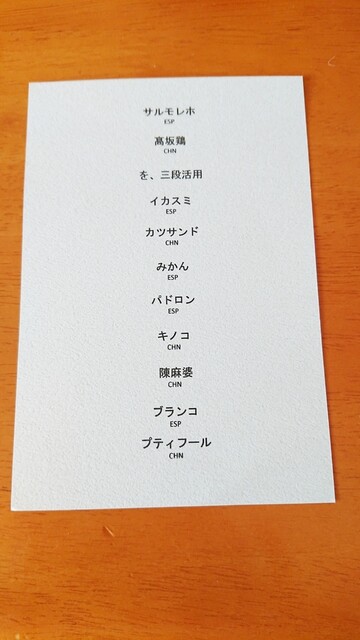 サルモレホ
ESP
髙坂鶏
CHN
を、三段活用
イカスミ
ESP
カツサンド
CHN
みかん
ESP
パドロン
ESP
キノコ
CHN
陳麻婆
CHN
ブランコ
ESP
プティフール
CHN